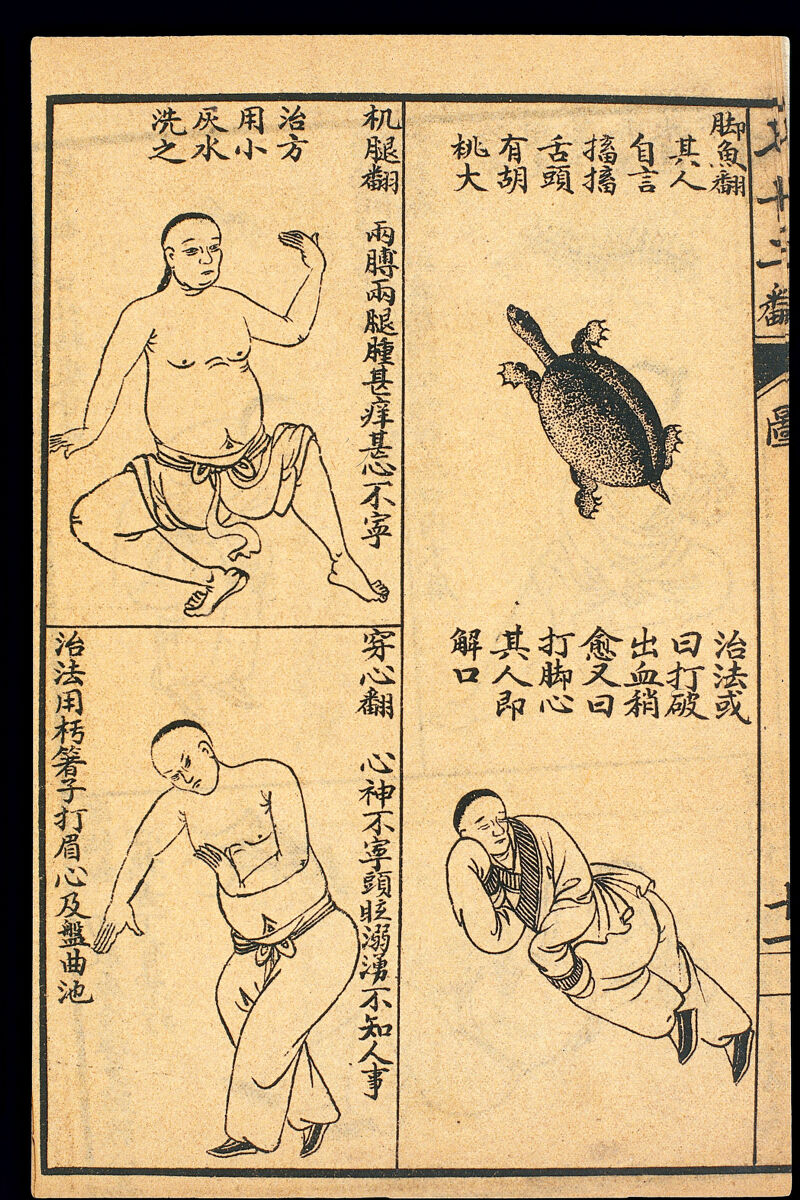 脚魚翻
其人
自言
搐搐
舌頭
有胡
桃大
治法或
曰打破
出血稍
愈又曰
打脚心
其人即
解口
机腿翻
兩膊兩腿腫甚痒甚心不寧
治方
用小
灰水
洗之
穿心翻
心神不寧頭眩溺湧不知人事
治法用杇箸子打眉心及盤曲池
十二番
圖
十一